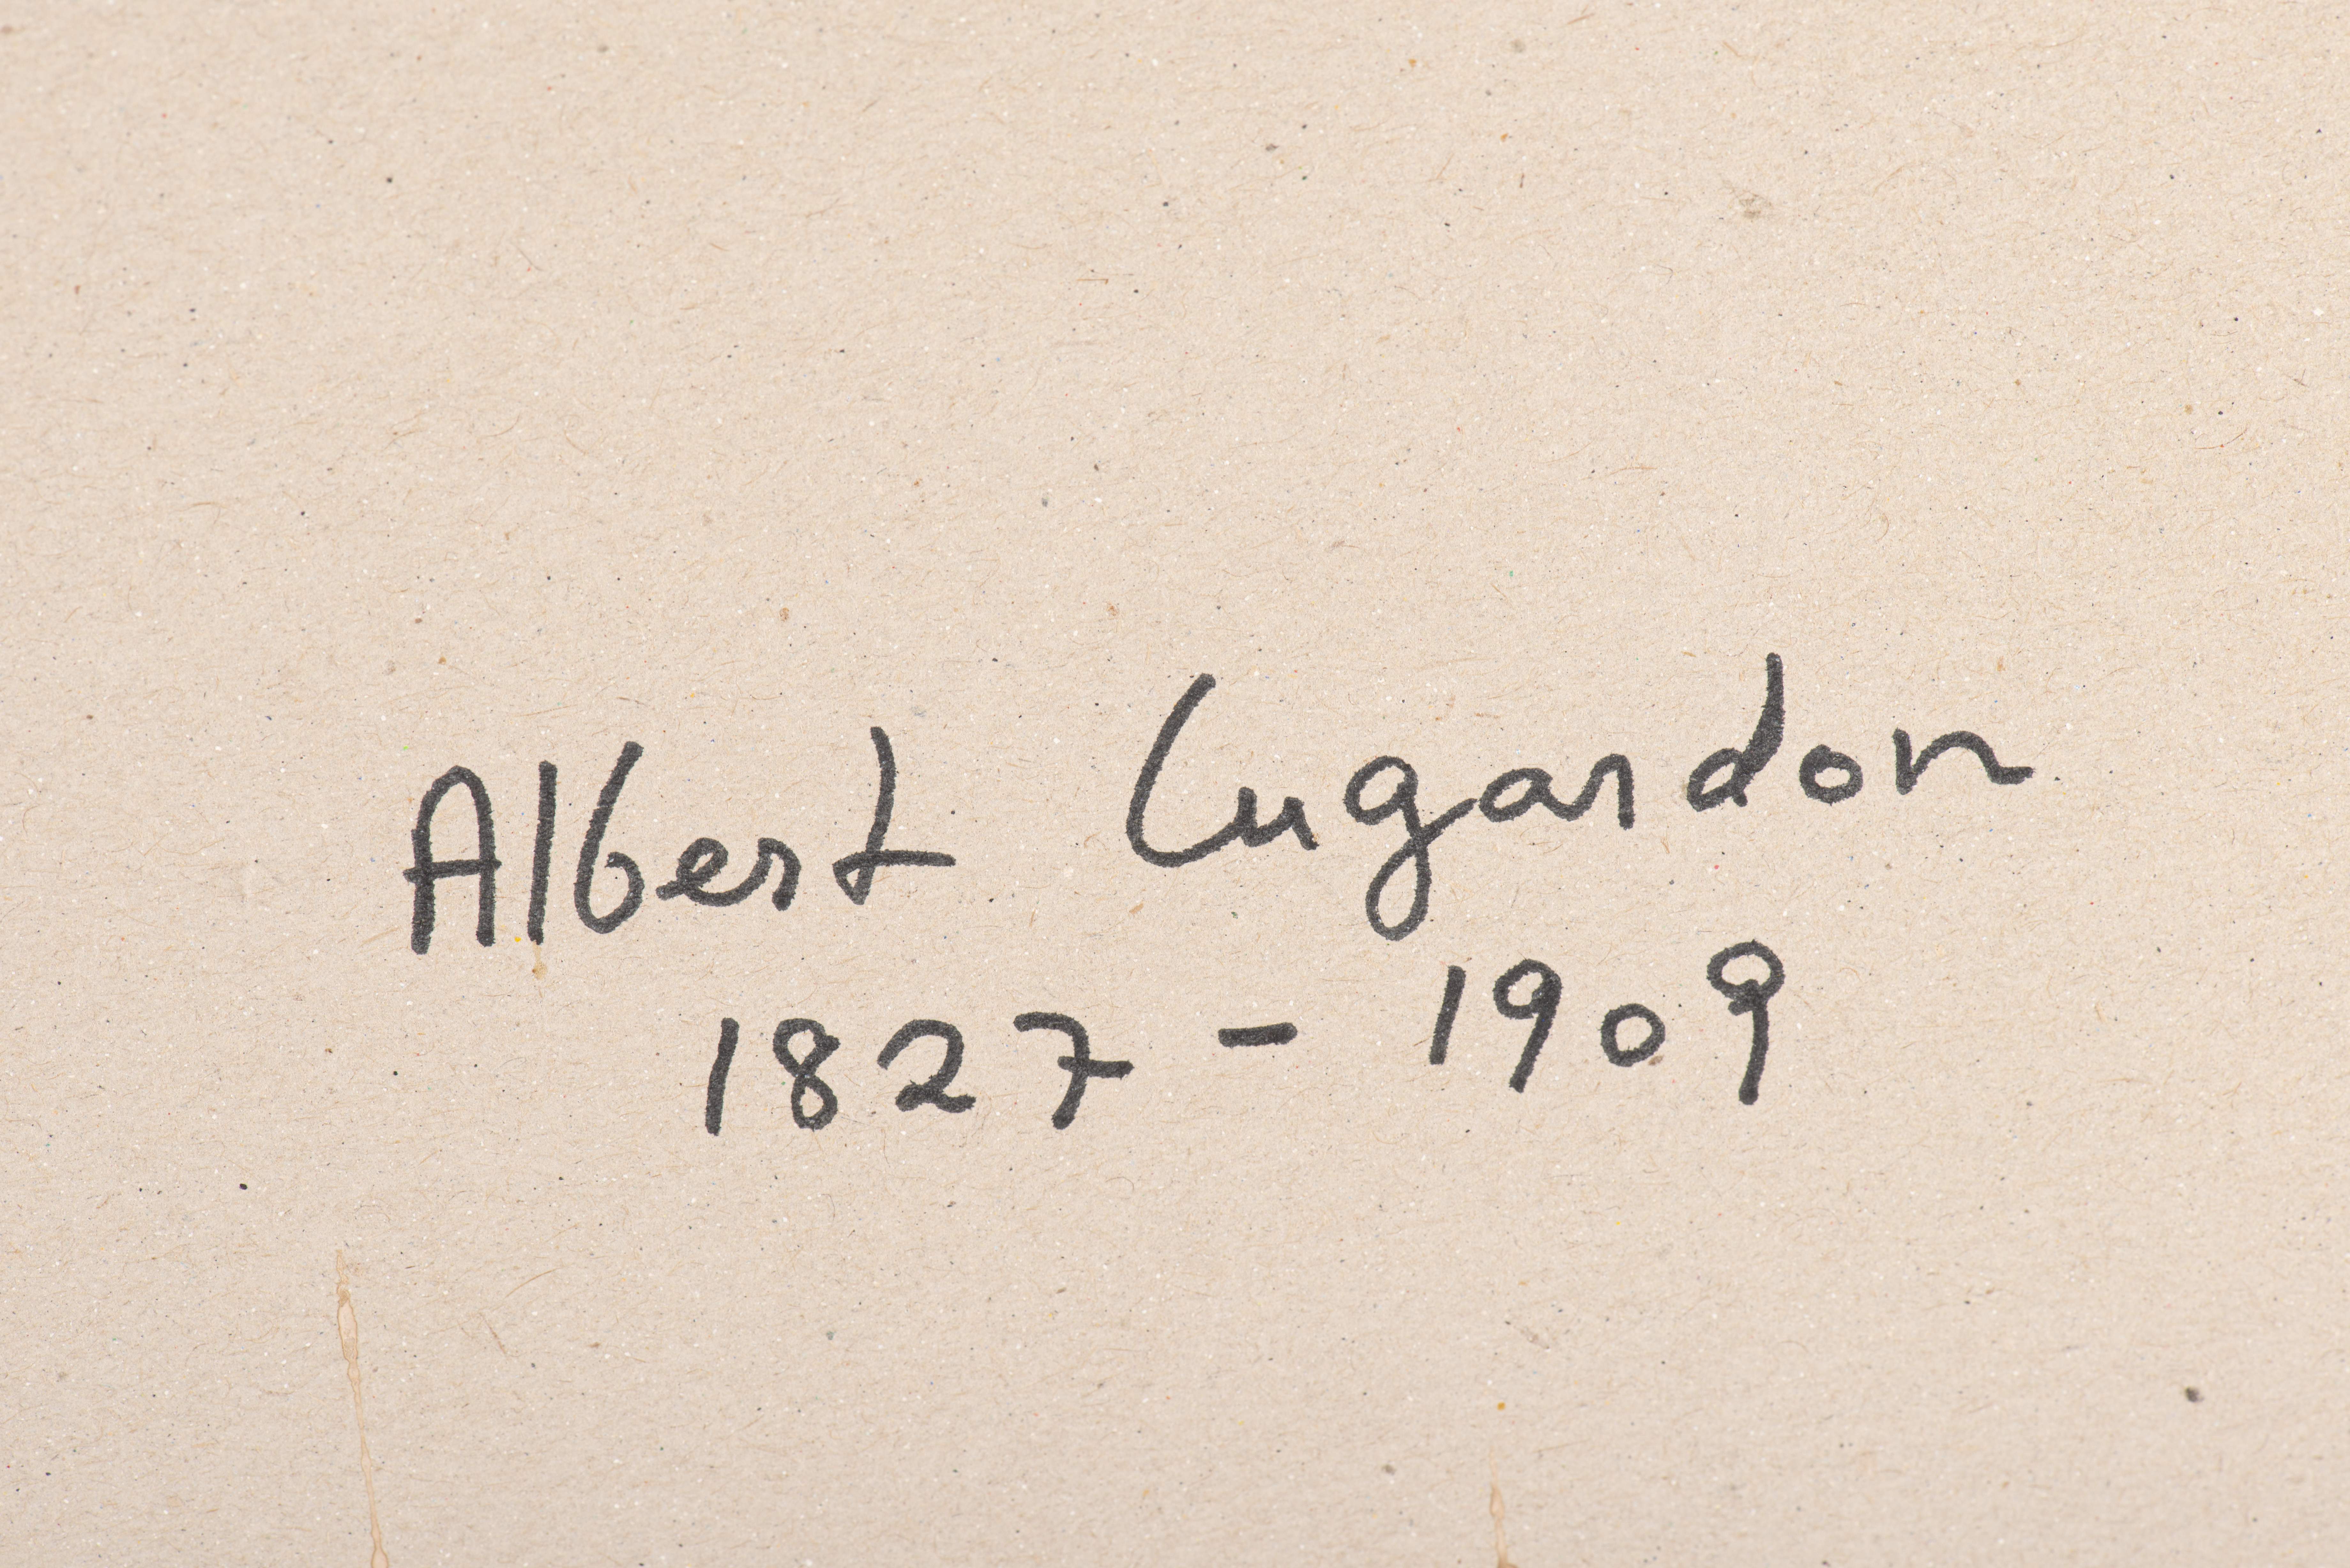 Albert Lugardon
1827 - 1909